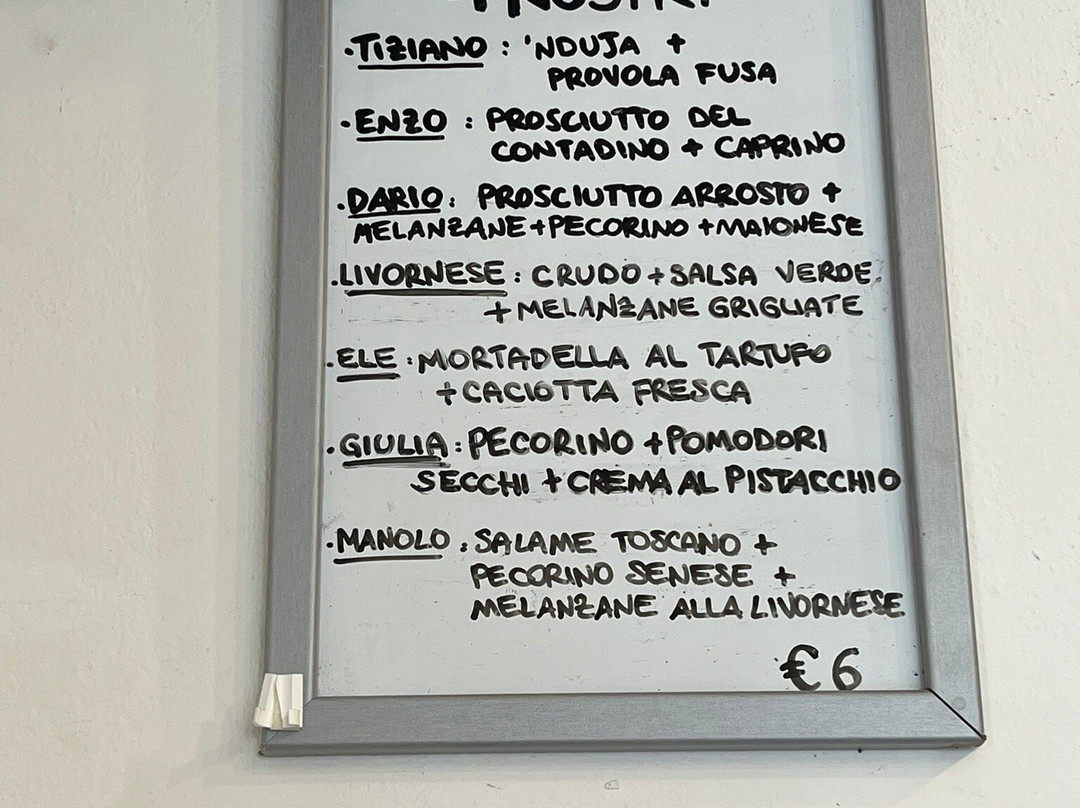 I NOSTRI
·TIZIANO : 'NDUJA +
PROVOLA FUSA
·ENZO : PROSCIUTTO DEL
CONTADINO + CAPRINO
·DARIO: PROSCIUTTO ARROSTO +
MELANZANE+PECORINO +MAIONESE
·LIVORNESE : CRUDO+SALSA VERDE
+MELANZANE GRIGLIATE
·ELE :MORTADELLA AL TARTUFO
+CACIOTTA FRESCA
·GIULIA :PECORINO +POMODORI
SECCHI +CREMA AL PISTACCHIO
·MANOLO :SALAME TOSCANO +
PECORINO SENESE +
MELANZANE ALLA LIVORNESE
€6